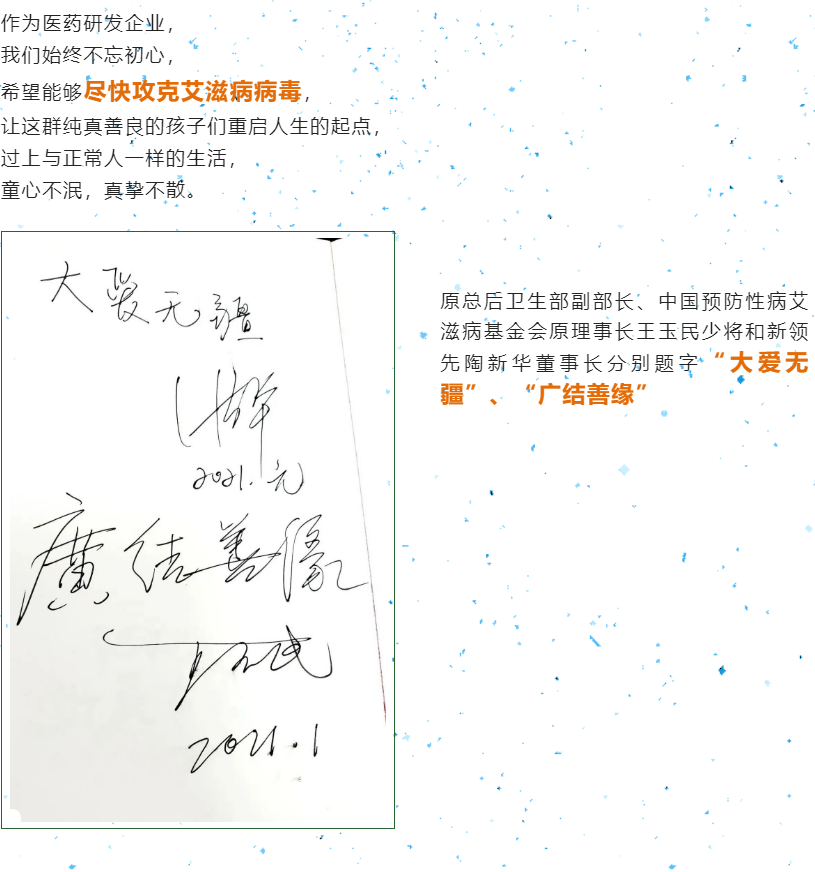 作为医药研发企业，
我们始终不忘初心，
希望能够尽快攻克艾滋病病毒，
让这群纯真善良的孩子们重启人生的起点，
过上与正常人一样的生活，
童心不泯，真挚不散。
大爱无疆
2021.元
廣结善缘
2021.1
原总后卫生部副部长、中国预防性病艾
滋病基金会原理事长王玉民少将和新领
先陶新华董事长分别题字“大爱无
疆”、“广结善缘”